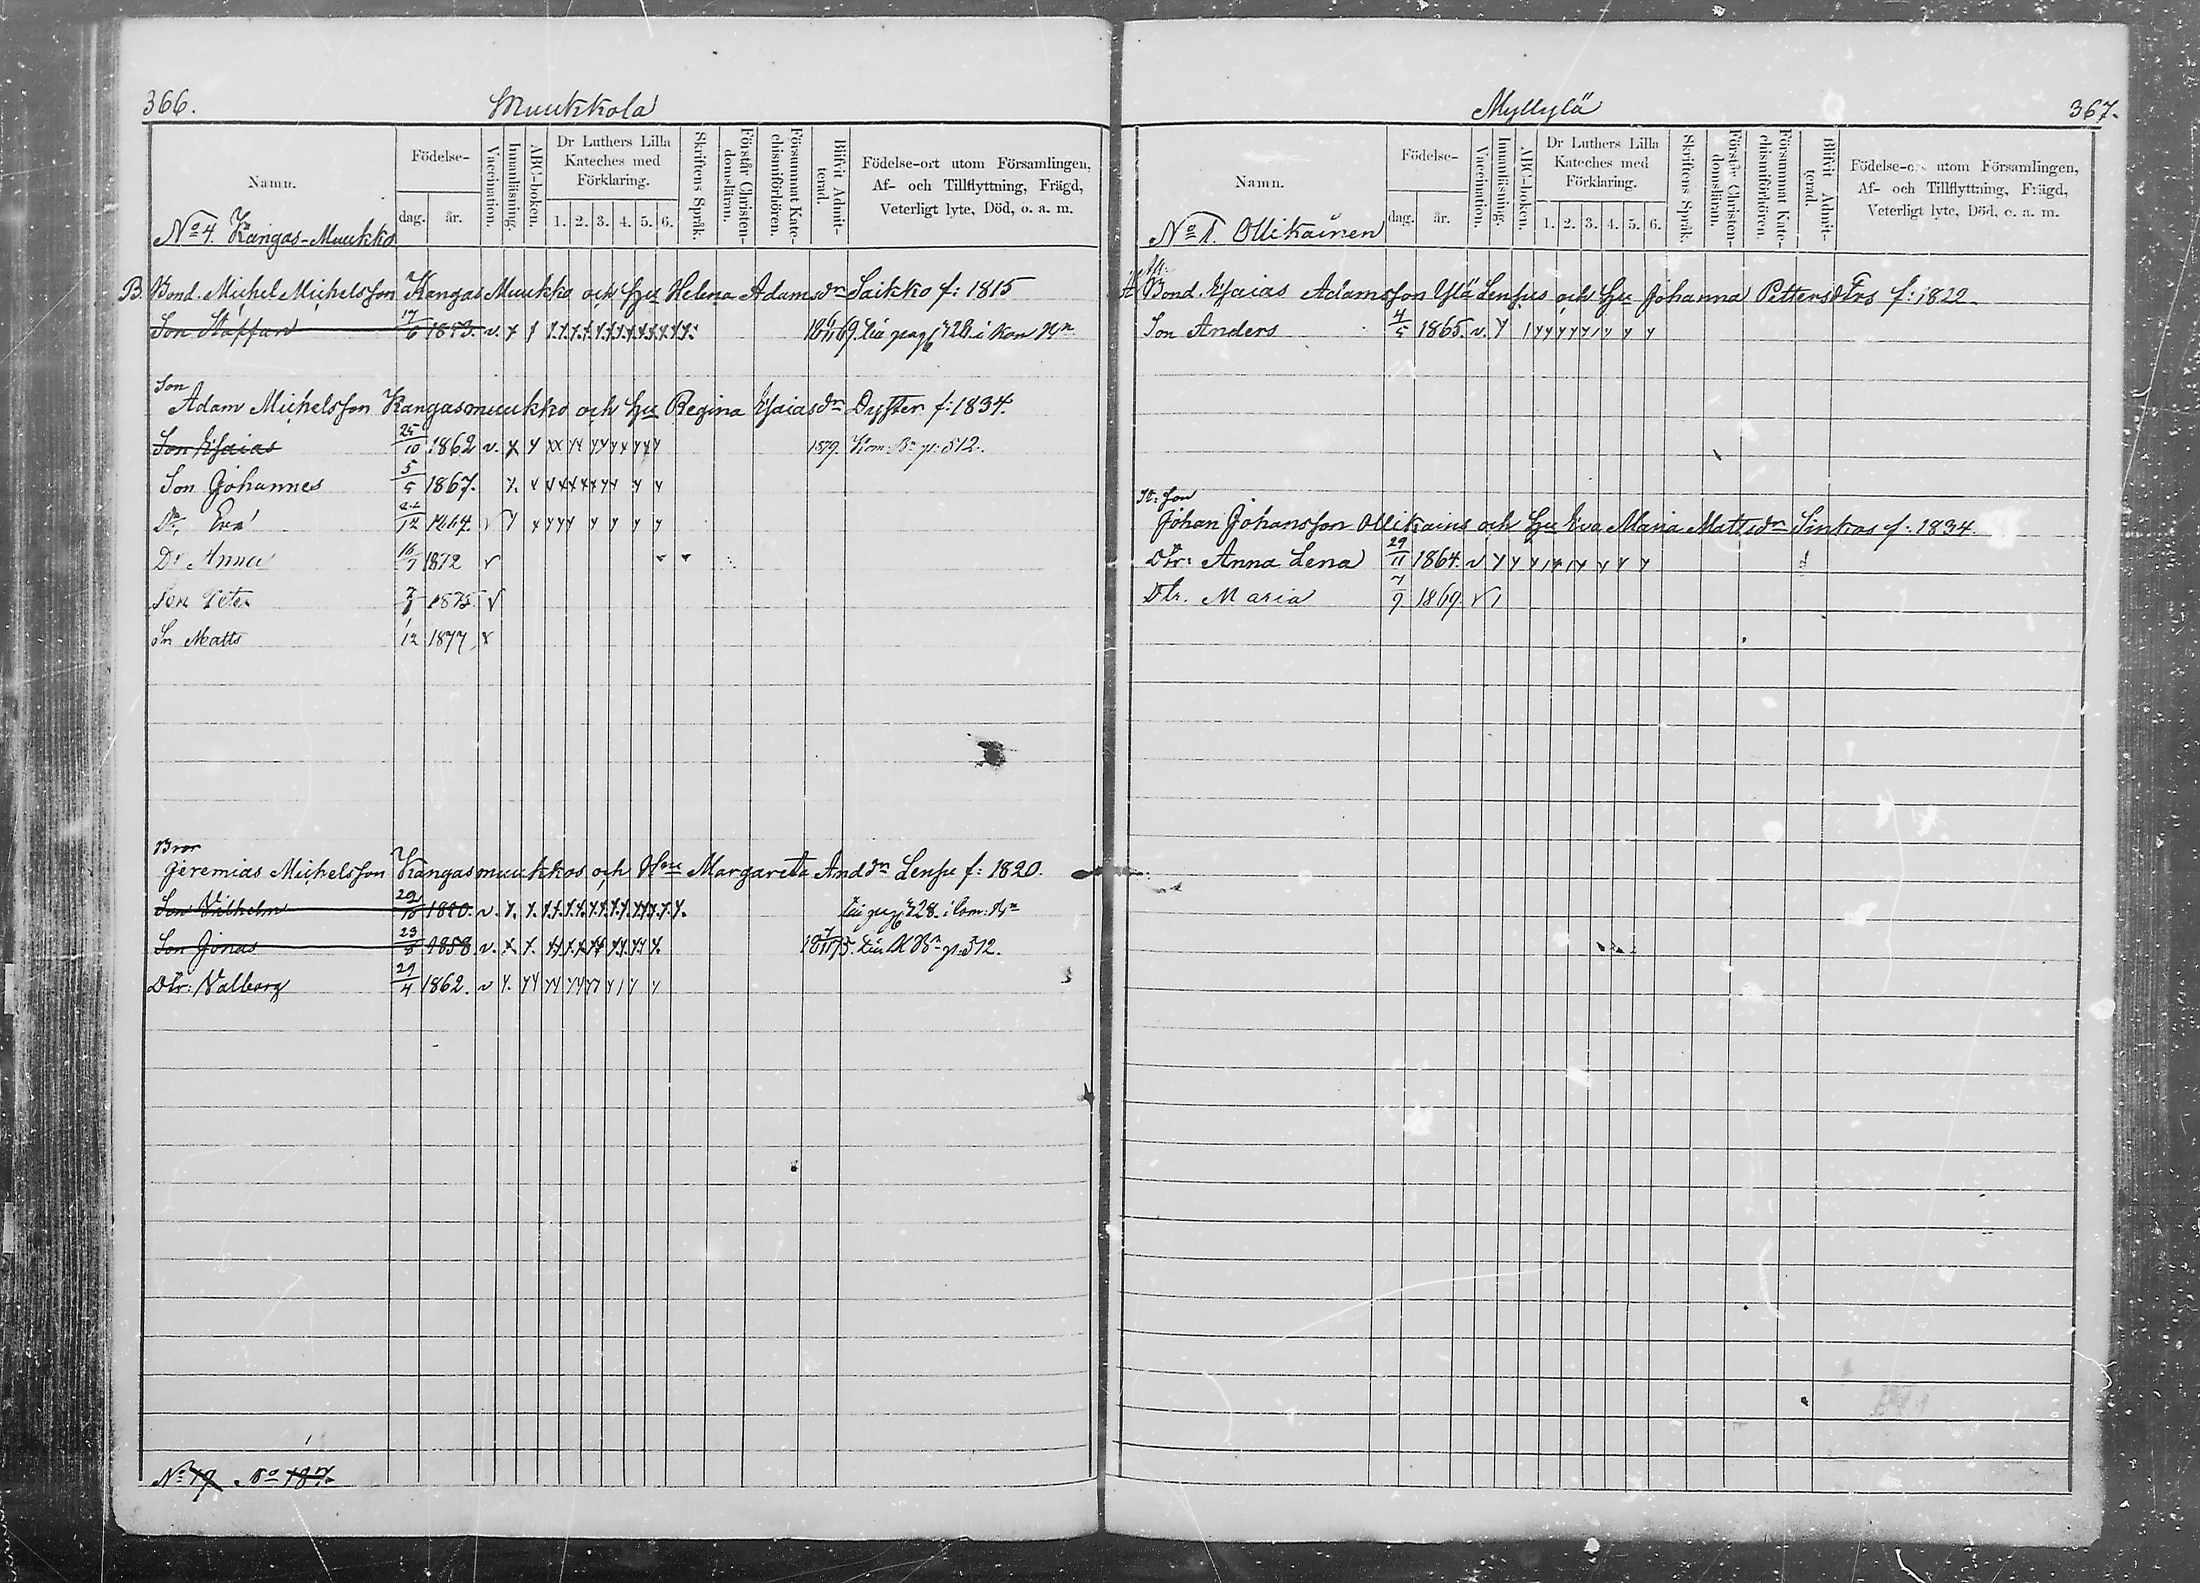 366.
Muukkola
Namn.
Födelse-
dag.
år.
Vaccination.
Innanläsning.
ABC-boken.
Dr Luthers Lilla
Kateches med
Förklaring.
1. 2. 3. 4. 5. 6.
Skriftens Språk.
Förstår Christen-
domsläran.
Försummat Kate-
chismiförhören.
Blifvit Admit-
terad.
Födelse-ort utom Församlingen,
Af- och Tillflyttning, Frägd,
Veterligt lyte, Död, o. a. m.
No 4. Kangas-Muukko
B. Bond. Michel Michelsson Kangas Muukko och Hu Helena Adamsdr Saikko f: 1815
Son Staffan 17/6 1853. v.
Son
Adam Michelsson Kangasmuukko och Hu Regina Esaiasdr Dyster f: 1834.
Son Esaias 25/10 1862 v. 1879. Kom. Bn p: 512.
Son Johannes 5/5 1867.
Dr. Eva 12 v
Dr Anna 16/7 1872 v
Son Peter 1875 v
Sn Matts 1/12 1877
Bror
Jeremias Michelsson Kangasmuukkos och Hu Margareta Anddr Lensu f: 1820.
Son Vilhelm 29/10 v.
Son Jonas 23/8 1858 v.
Dtr: Valborg 29/4 1862. v
No 19. No 187.
Myllylä
367.
Namn.
Födelse-
dag.
år.
Vaccination.
Innanläsning.
ABC-boken.
Dr Luthers Lilla
Kateches med
Förklaring.
1. 2. 3. 4. 5. 6.
Skriftens Språk.
Förstår Christen-
domsläran.
Försummat Kate-
chismiförhören.
Blifvit Admit-
terad.
Födelse-ort utom Församlingen,
Af- och Tillflyttning, Frägd,
Veterligt lyte, Död, o. a. m.
No 1. Ollikainen
Bond. Esaias Adamsson Ylä Lensus och Hu Johanna Pettersdr f: 1822
Son Anders 4/5 1865. v.
St: son
Johan Johansson Ollikains och Hu Eva Maria Mattsdr Sinkos f: 1834.
Dtr: Anna Lena 29/11 1864. v
Dtr. Maria 7/9 1869. v